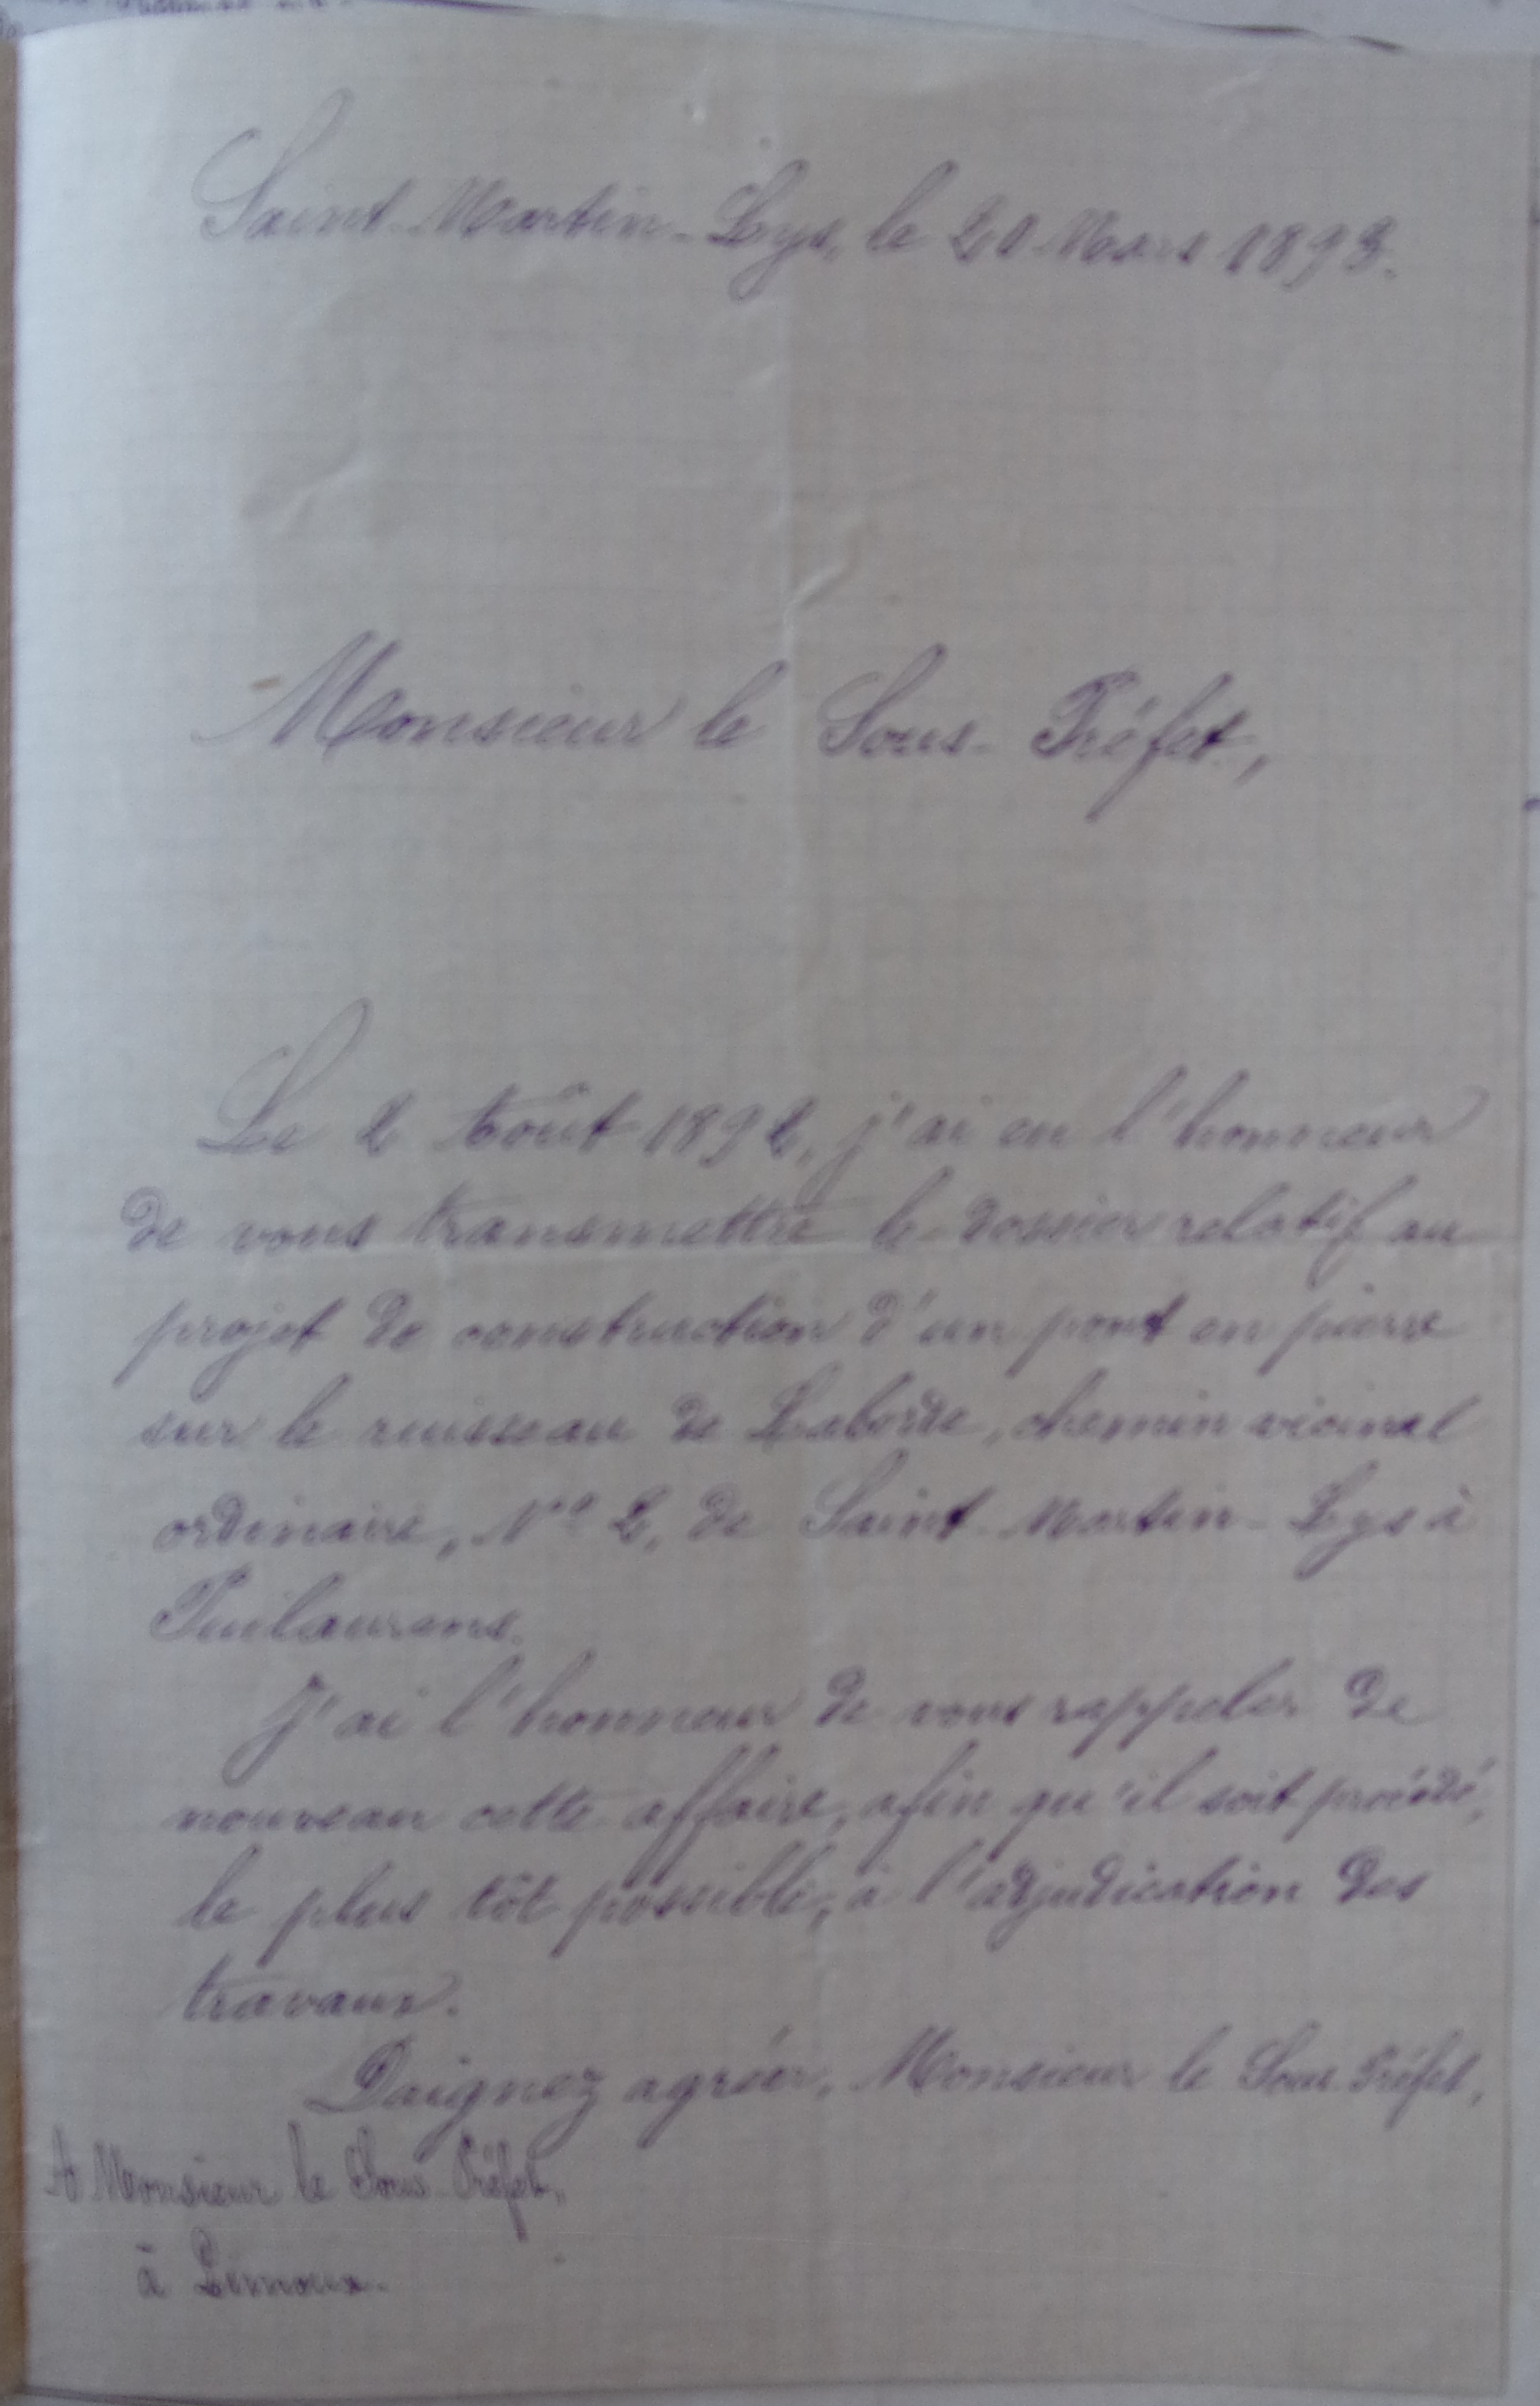 Saint-Martin-Lys, le 20 Mars 1893.
Monsieur le Sous-Préfet,
Le 2 Août 1892, j'ai eu l'honneur
de vous transmettre le dossier relatif au
projet de construction d'un pont en pierre
sur le ruisseau de Laborde, chemin vicinal
ordinaire, N° 2, de Saint-Martin-Lys à
Puilaurens.
J'ai l'honneur de vous rappeler de
nouveau cette affaire, afin qu'il soit procédé,
le plus tôt possible, à l'adjudication des
travaux.
Daignez agréer, Monsieur le Sous-Préfet,
A Monsieur le Sous-Préfet,
à Limoux.